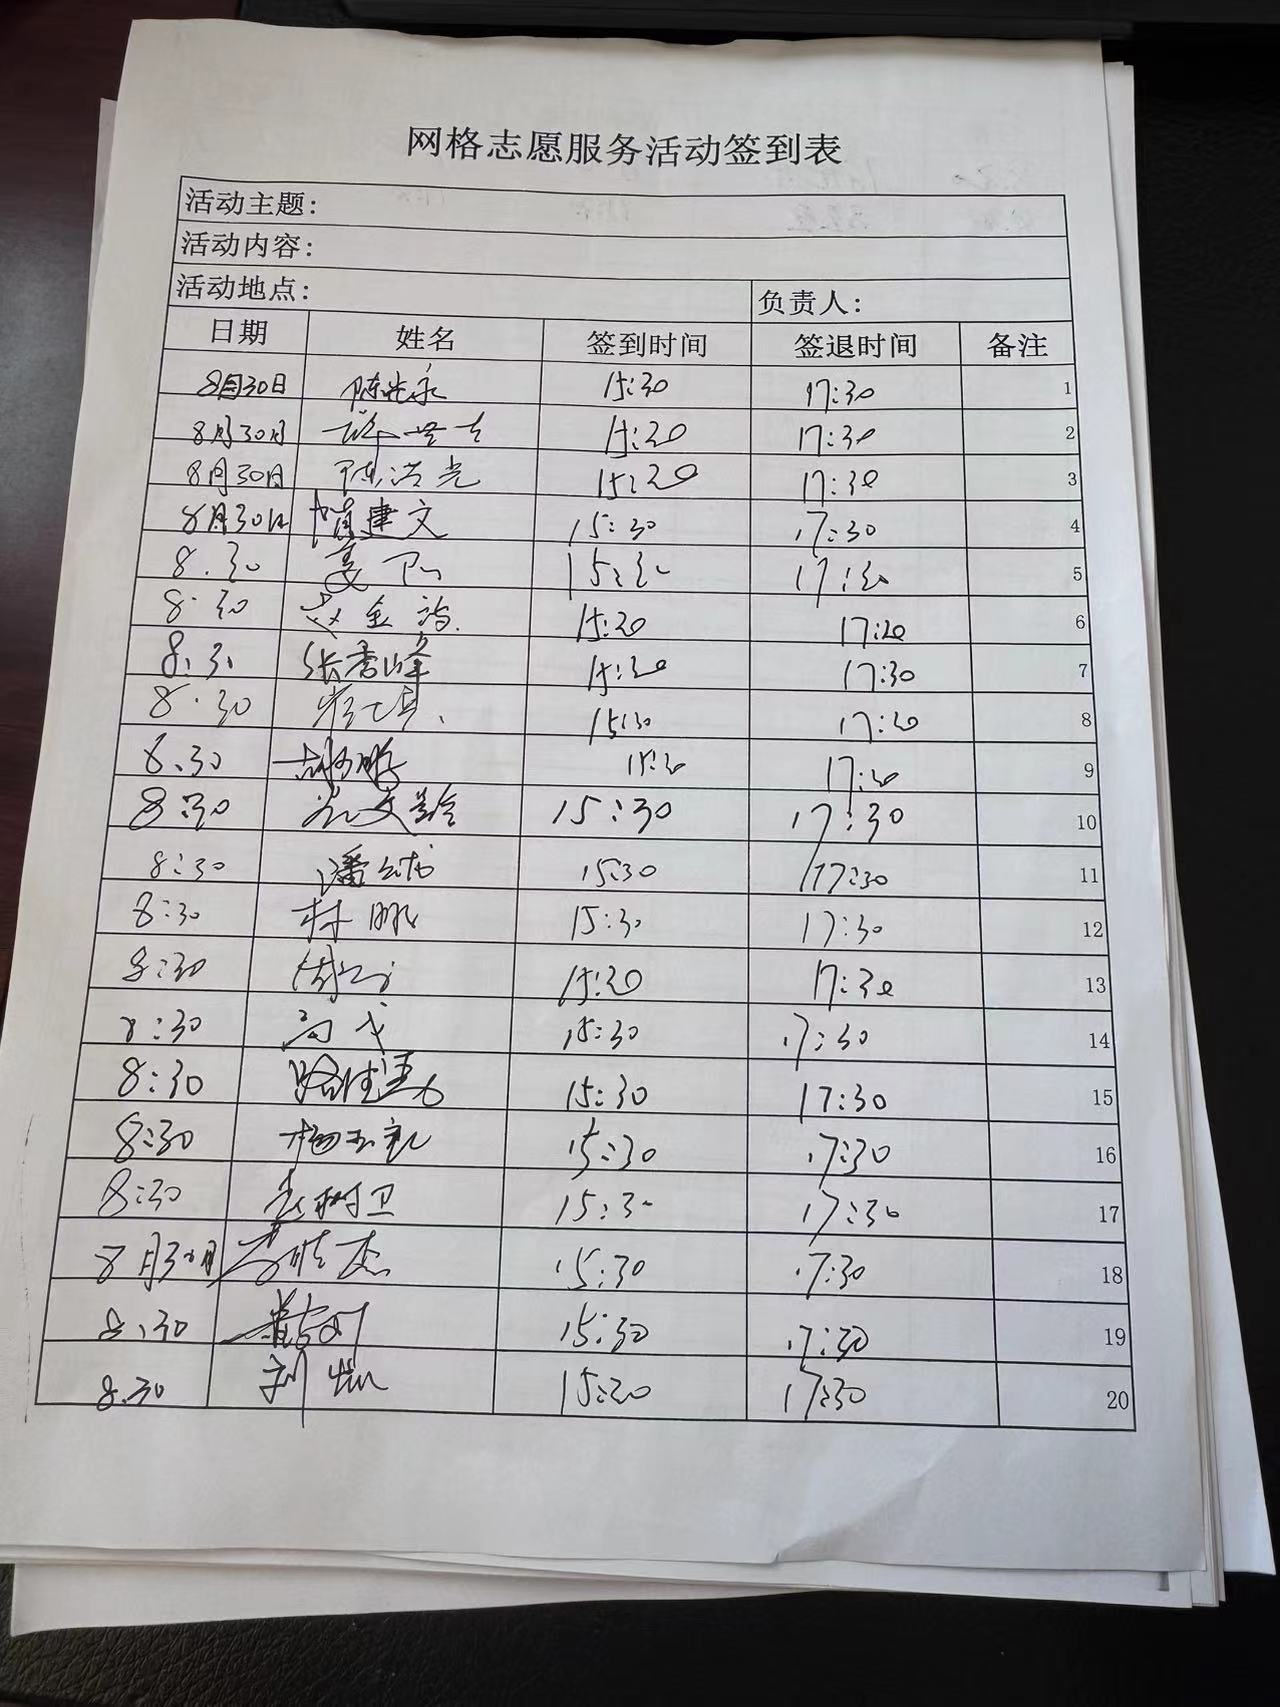 网格志愿服务活动签到表
活动主题:
活动内容:
活动地点: 负责人:
日期 姓名 签到时间 签退时间 备注
8月30日 15:30 17:30 1
8月30日 15:30 17:30 2
8月30日 陈浩光 15:30 17:30 3
8月30日 建文 15:30 17:30 4
8.30 姜 15:30 17:30 5
8.30 15:30 17:30 6
8.30 张秀峰 15:30 17:30 7
8.30 15:30 17:30 8
8.30 胡鹏 15:30 17:30 9
8:30 文龄 15:30 17:30 10
8:30 潘 15:30 17:30 11
8:30 林 15:30 17:30 12
8:30 15:30 17:30 13
8:30 15:30 17:30 14
8:30 15:30 17:30 15
8:30 杨玉礼 15:30 17:30 16
8:30 树卫 15:30 17:30 17
8月30日 李晓杰 15:30 17:30 18
8.30 15:30 17:30 19
8.30 刘 15:30 17:30 20